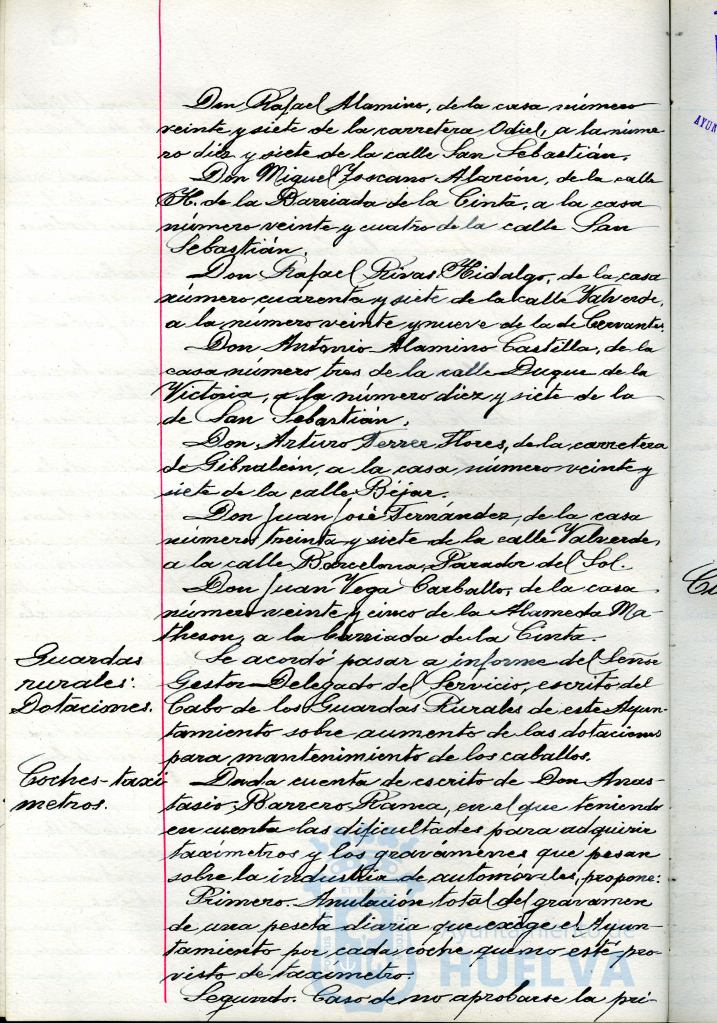 Don Rafael Alamino, de la casa número
veinte y siete de la carretera Odiel, a la núme-
ro diez y siete de la calle San Sebastián.
Don Miguel Toscano Alarcón, de la calle
H. de la Barriada de la Cinta, a la casa
número veinte y cuatro de la calle San
Sebastián.
Don Rafael Rivas Hidalgo, de la casa
número cuarenta y siete de la calle Valverde,
a la número veinte y nueve de la de Cervantes.
Don Antonio Alamino Castilla, de la
casa número tres de la calle Duque de la
Victoria, a la número diez y siete de la
de San Sebastián.
Don Arturo Ferrer Flores, de la carretera
de Gibraleón, a la casa número veinte y
siete de la calle Béjar.
Don Juan José Fernández, de la casa
número treinta y siete de la calle Valverde,
a la calle Barcelona, Parador del Sol.
Don Juan Vega Carballo, de la casa
número veinte y cinco de la Alameda Ma-
theson, a la barriada de la Cinta.
Guardas
rurales:
Dotaciones.
Se acordó pasar a informe del Señor
Gestor Delegado del Servicio, escrito del
Cabo de los Guardas Rurales de este Ayun-
tamiento sobre aumento de las dotaciones
para mantenimiento de los caballos.
Coches-taxí
metros.
Dada cuenta de escrito de Don Anas-
tasio Barrero Ranea, en el que teniendo
en cuenta las dificultades para adquirir
taxímetros y los gravámenes que pesan
sobre la industria de automóviles, propone:
Primero. Anulación total del gravamen
de una peseta diaria que exige el Ayun-
tamiento por cada coche que no esté pro-
visto de taxímetro.
Segundo. Caso de no aprobarse la pri-
Ayuntamiento de
HUELVA